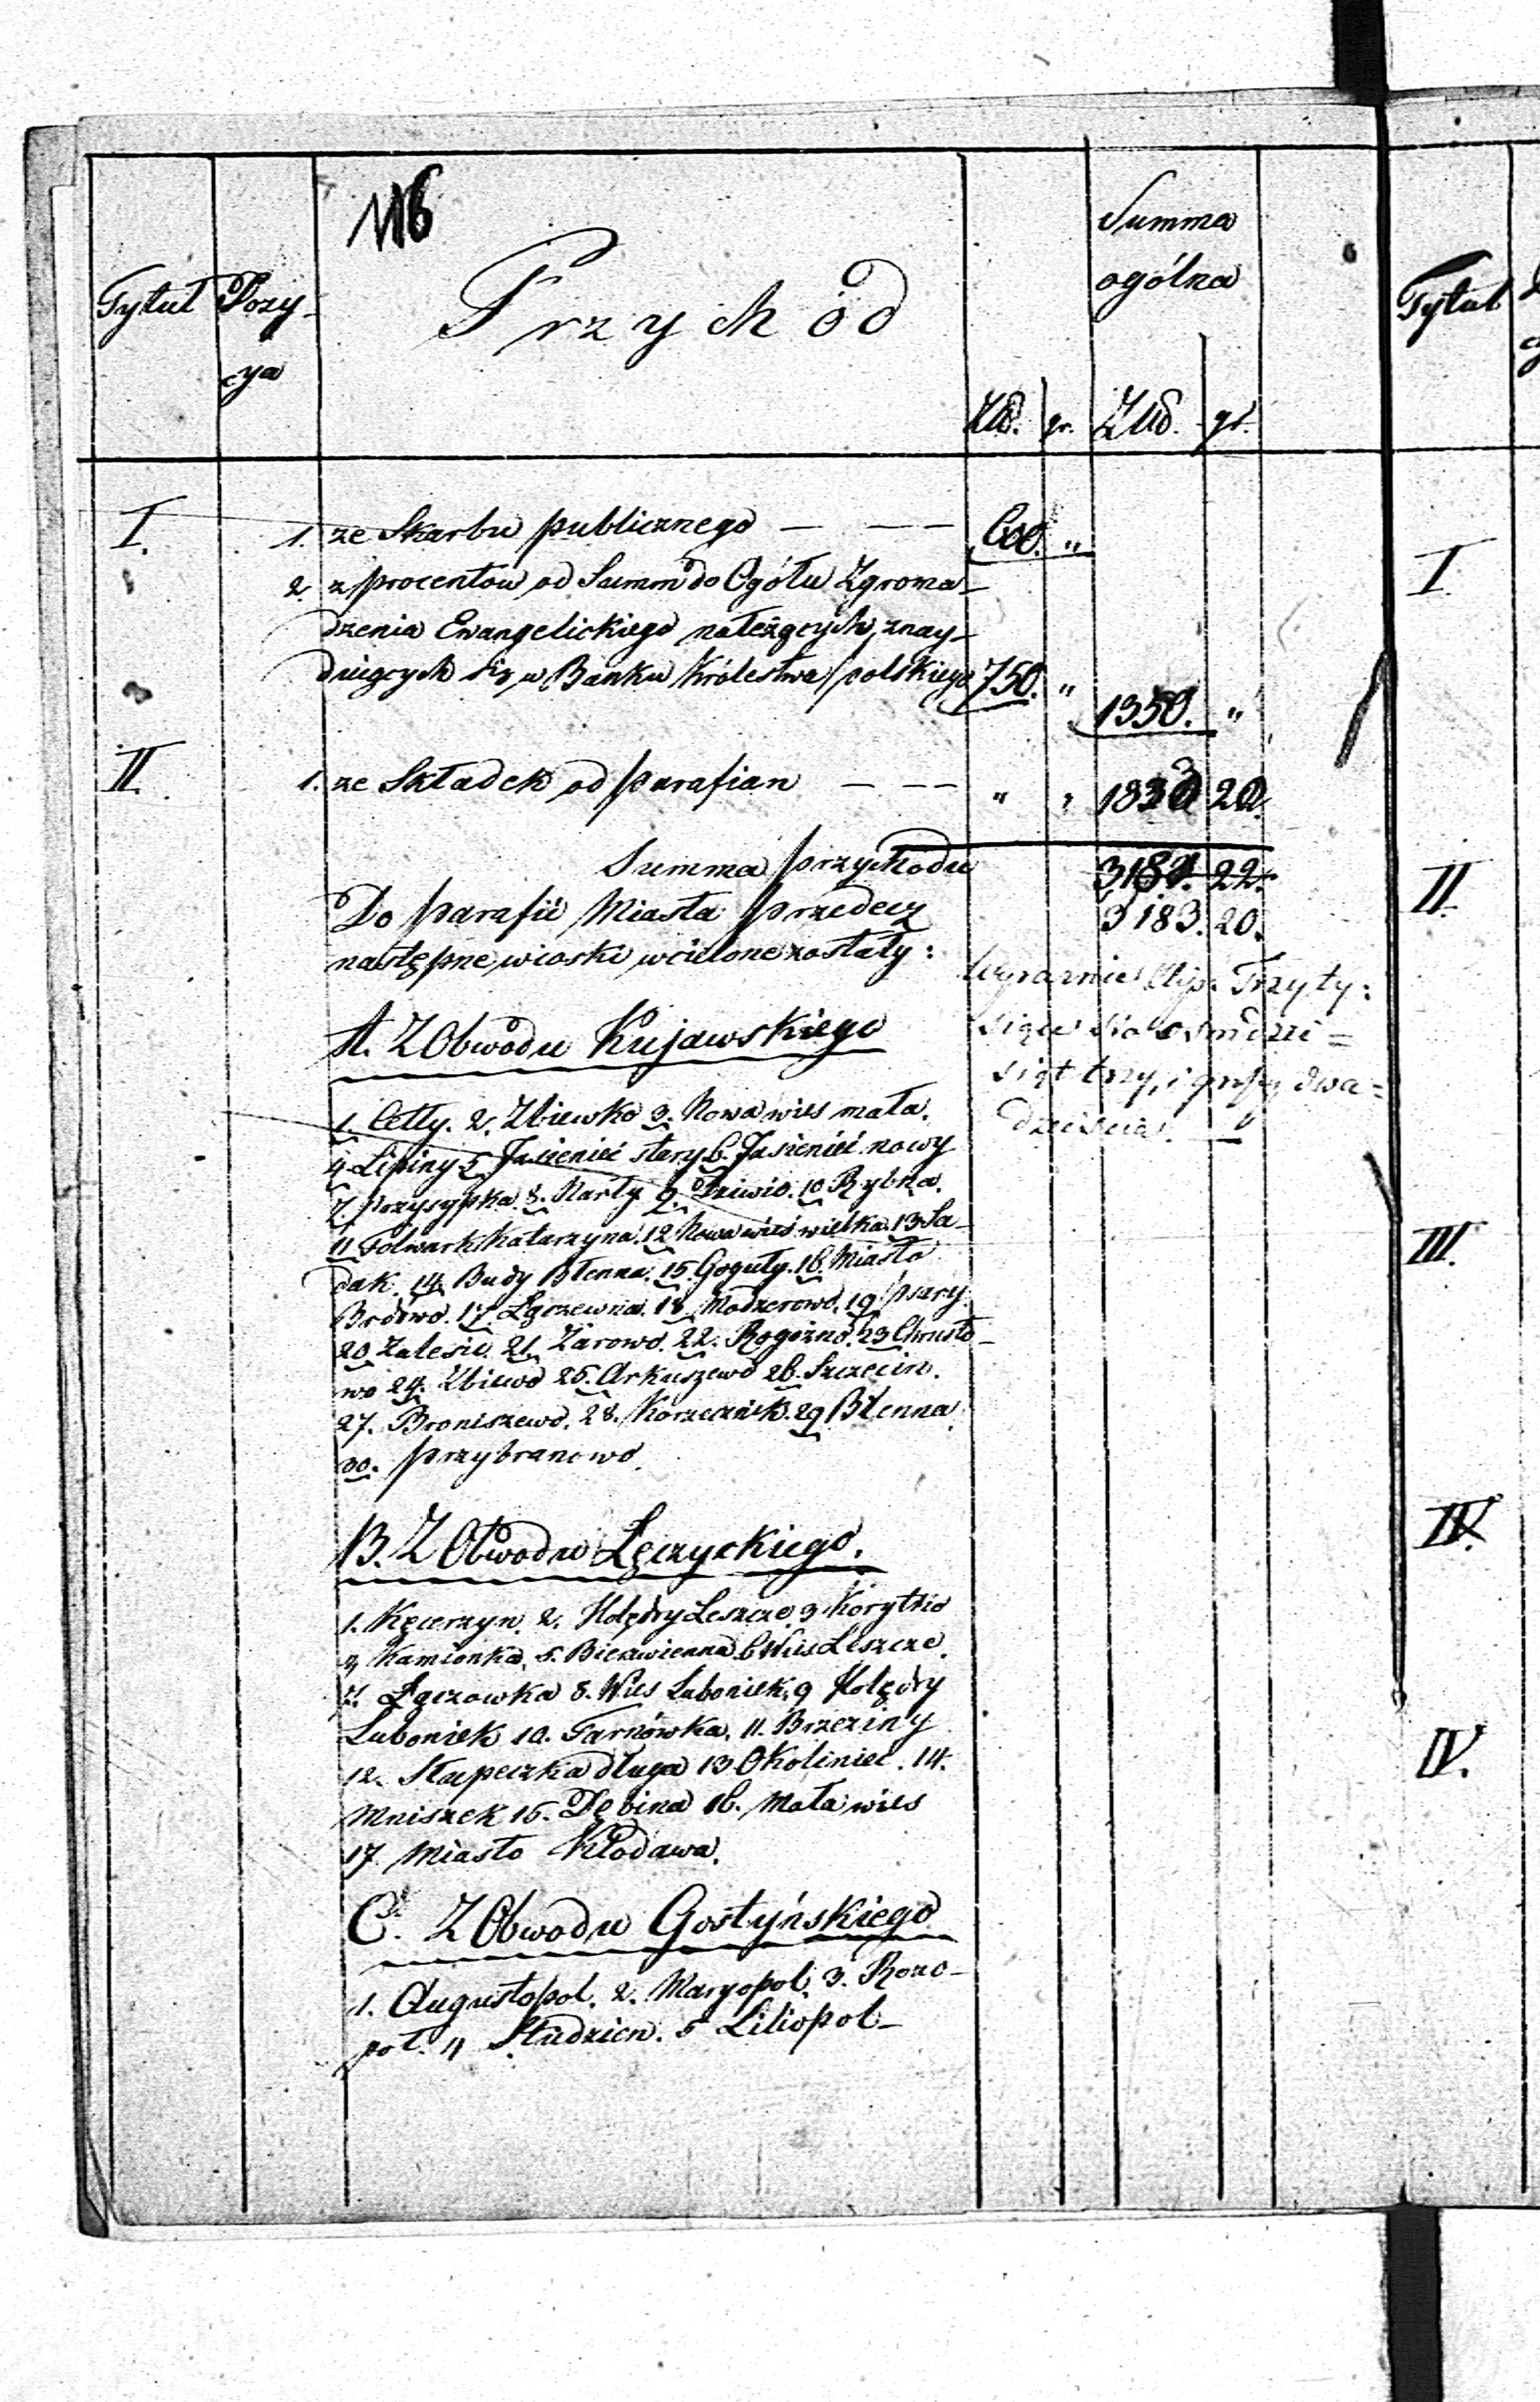 116
Summa
ogólna
Tytuł Pozy-
cya
Przychód
Złd. gr. Złd. gr.
I. 1. ze Skarbu publicznego — — — 600. "
2. z procentów od Summ do Ogółu Zgroma-
dzenia Ewangelickiego należących, znay-
duiących się w Banku Królestwa polskiego 750. " 1350. "
II. 1. ze Składek od parafian — — — " " 1833 20.
Summa przychodu 3182. 22.
3183. 20.
Do parafii Miasta Przedecz
następne wioski wcielone zostały:
wyraźnie Złp. Trzy ty:
siące sto ośmdzie=
siąt trzy, i groszy dwa=
dzieścia. —"
A. Z Obwodu Kujawskiego
1. Cetty. 2. Zbiewko 3. Nowa wies mała.
4 Lipiny 5 Jasieniec stary 6. Jasieniec nowy
7. Przysypka. 8. Narty 9. Dziwie. 10 Rybna.
11 Folwark Katarzyna. 12 Nowa wieś wielka. 13 Sa-
dak. 14. Budy Błenna. 15. Goguły. 16. Miasto
Brdowo. 17. Łączewna. 18. Modzerowo. 19 Psary
20 Zalesie. 21. Żarowo. 22. Rogoźno. 23 Chrusto-
wo 24. Zbiewo 25. Arkuszewo 26. Szczecin.
27. Broniszewo. 28. Korzecznik. 29 Błenna.
30. Przybranowo.
B. Z Obwodu Łęczyckiego.
1. Kęcerzyn. 2. Holędry Leszcze 3. Korytko
4 Kamionka. 5. Bierzwienna 6 Wies Leszcze.
7. Łączowka 8. Wies Luboniek. 9 Holędry
Luboniek 10. Tarnówka. 11. Brzeziny
12. Słupeczka długa 13 Okoliniec. 14.
Mniszek 15. Dębina 16. Mała wies
17. Miasto Kłodawa.
C. Z Obwodu Gostyńskiego
1. Augustopol. 2. Maryopol. 3. Rozo-
pol. 4 Studzien. 5 Liliopol-
Tytuł
I
II.
III.
IV.
IV.